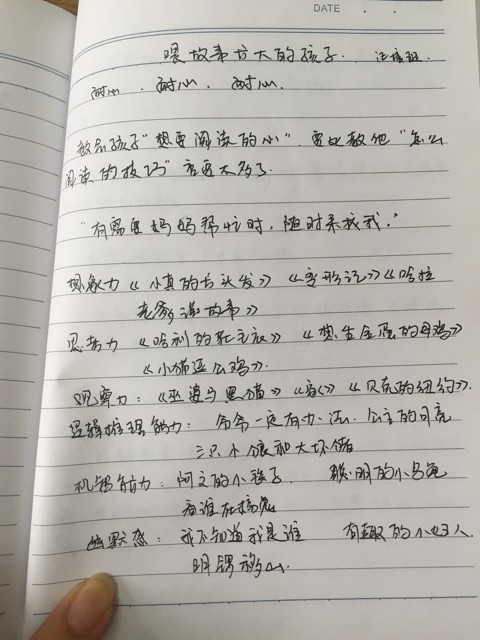 DATE
喂故事书长大的孩子. 汪培珽.
耐心. 耐心. 耐心.
教会孩子“想要阅读的心”. 要比教他“怎么
阅读的技巧”重要太多了.
“有需要妈妈帮忙时, 随时来找我.”
想象力《小真的长头发》《变形记》《哈拉
老爹讲故事》
思考力《哈利的 》《想生金蛋的母鸡》
《小猪逛公鸡》.
观察力:《巫婆与黑猫》《家》《贝克的纽约》.
逻辑推理能力: 爷爷一定有办法. 公主的月亮
三只小狼和大坏猪
机智能力: 阿文的小毯子. 聪明的小乌龟
有谁在搞鬼
幽默感: 我不知道我是谁 有趣的小女人
明锣移山.